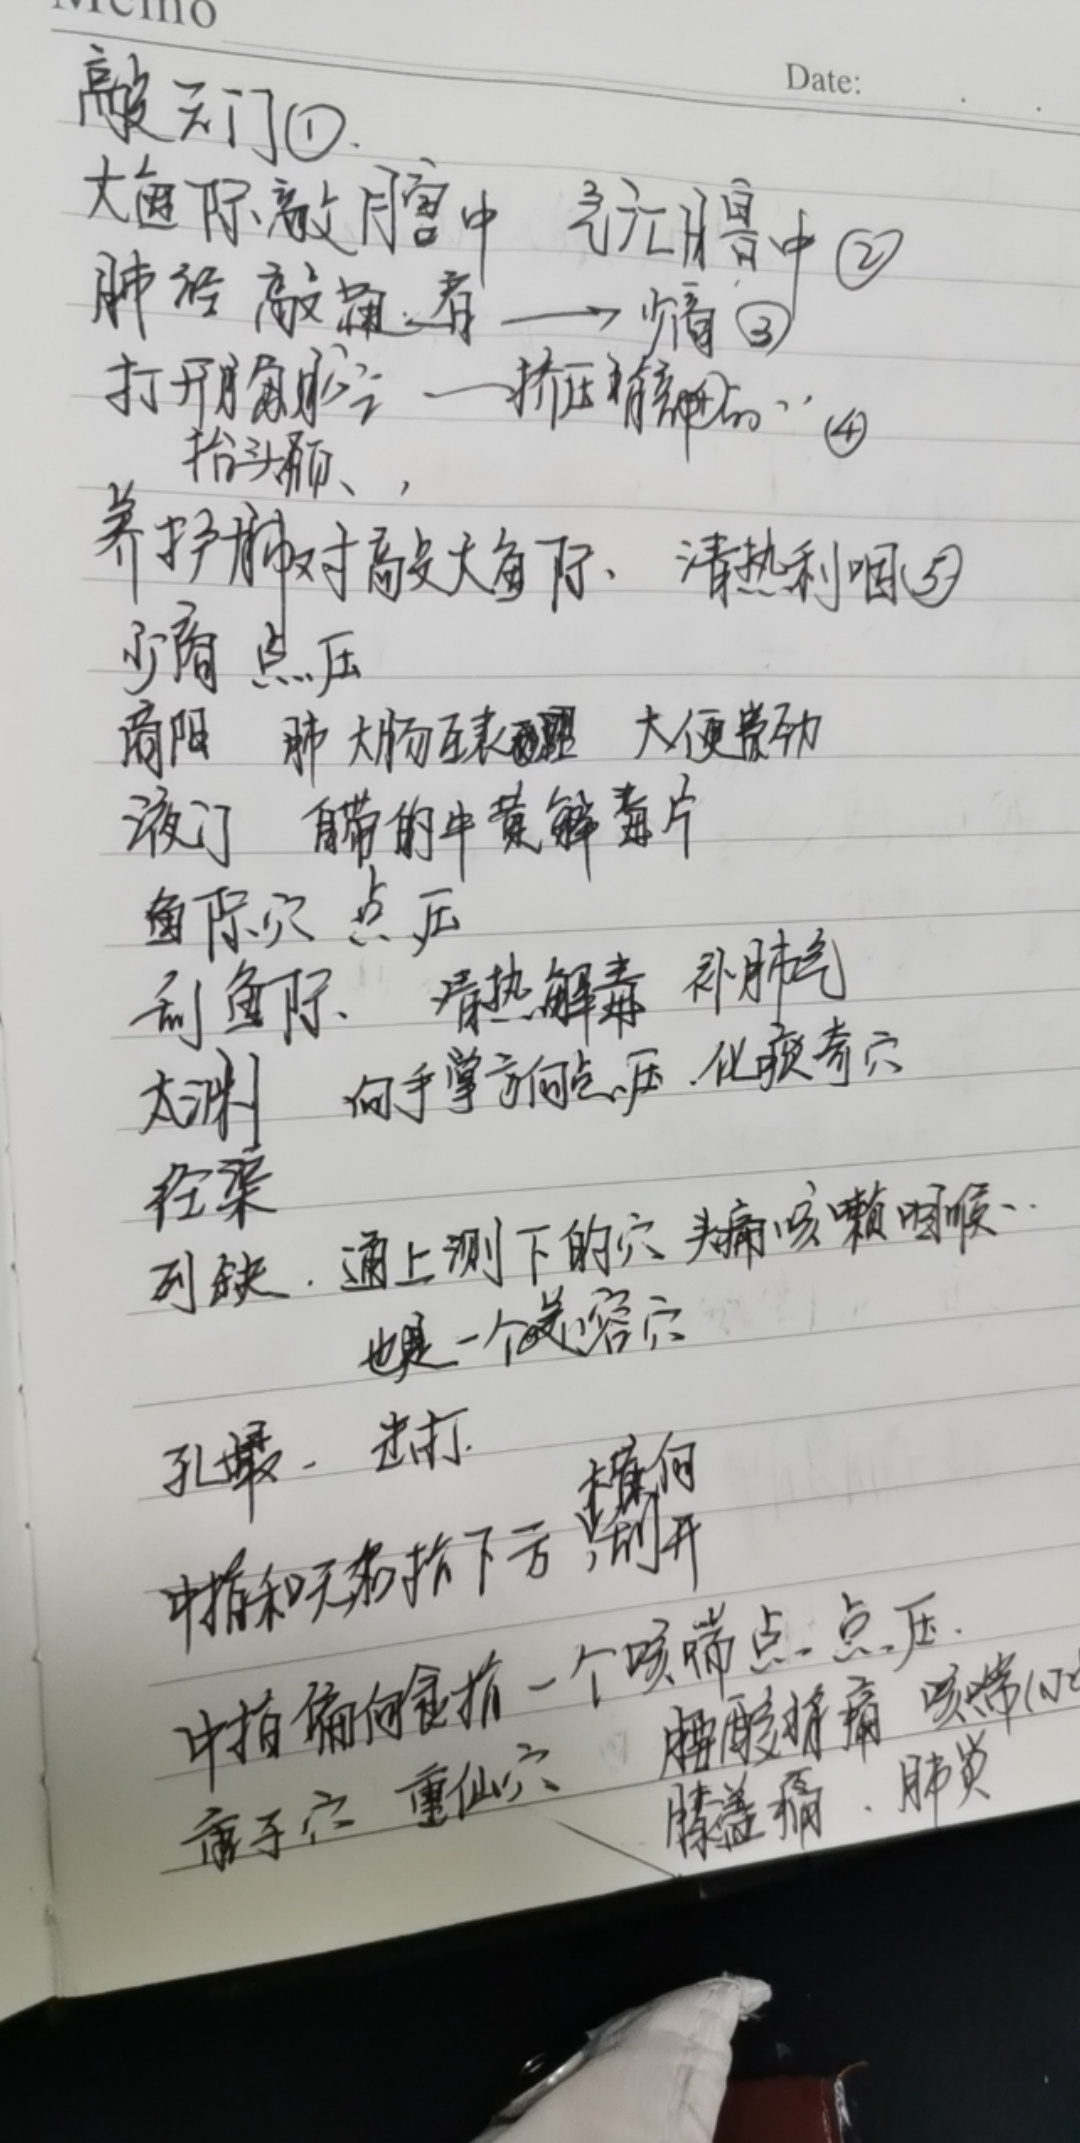 Memo
Date:
敲天门①.
大鱼际敲膻中 气汇膻中②
肺经敲 → 少商③
打开胸腔 一挤压
④
抬头颈、,
养护肺 对敲大鱼际、 清热利咽⑤
少商 点压
商阳 肺大肠互表 大便费劲
液门 自带的牛黄解毒片
鱼际穴 点压
刮鱼际、 清热解毒 补肺气
太渊 向手掌方向点压.化痰奇穴
经渠
列缺. 通上测下的穴 头痛咳嗽咽喉..
也是一个美容穴
孔最. 敲打.
横向
中指和无名指下方 刮开
中指偏向食指一个咳喘点. 点压.
腰酸 痛 咳喘
重子穴 重仙穴
膝盖痛. 肺炎